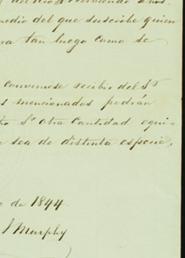 medio del que suscribe quien
tan luego como se
convenirse recibo del Sr
mencionados podrán
Sr otra Cantidad equi-
sea de distinta especie,
de 1844
J Murphy